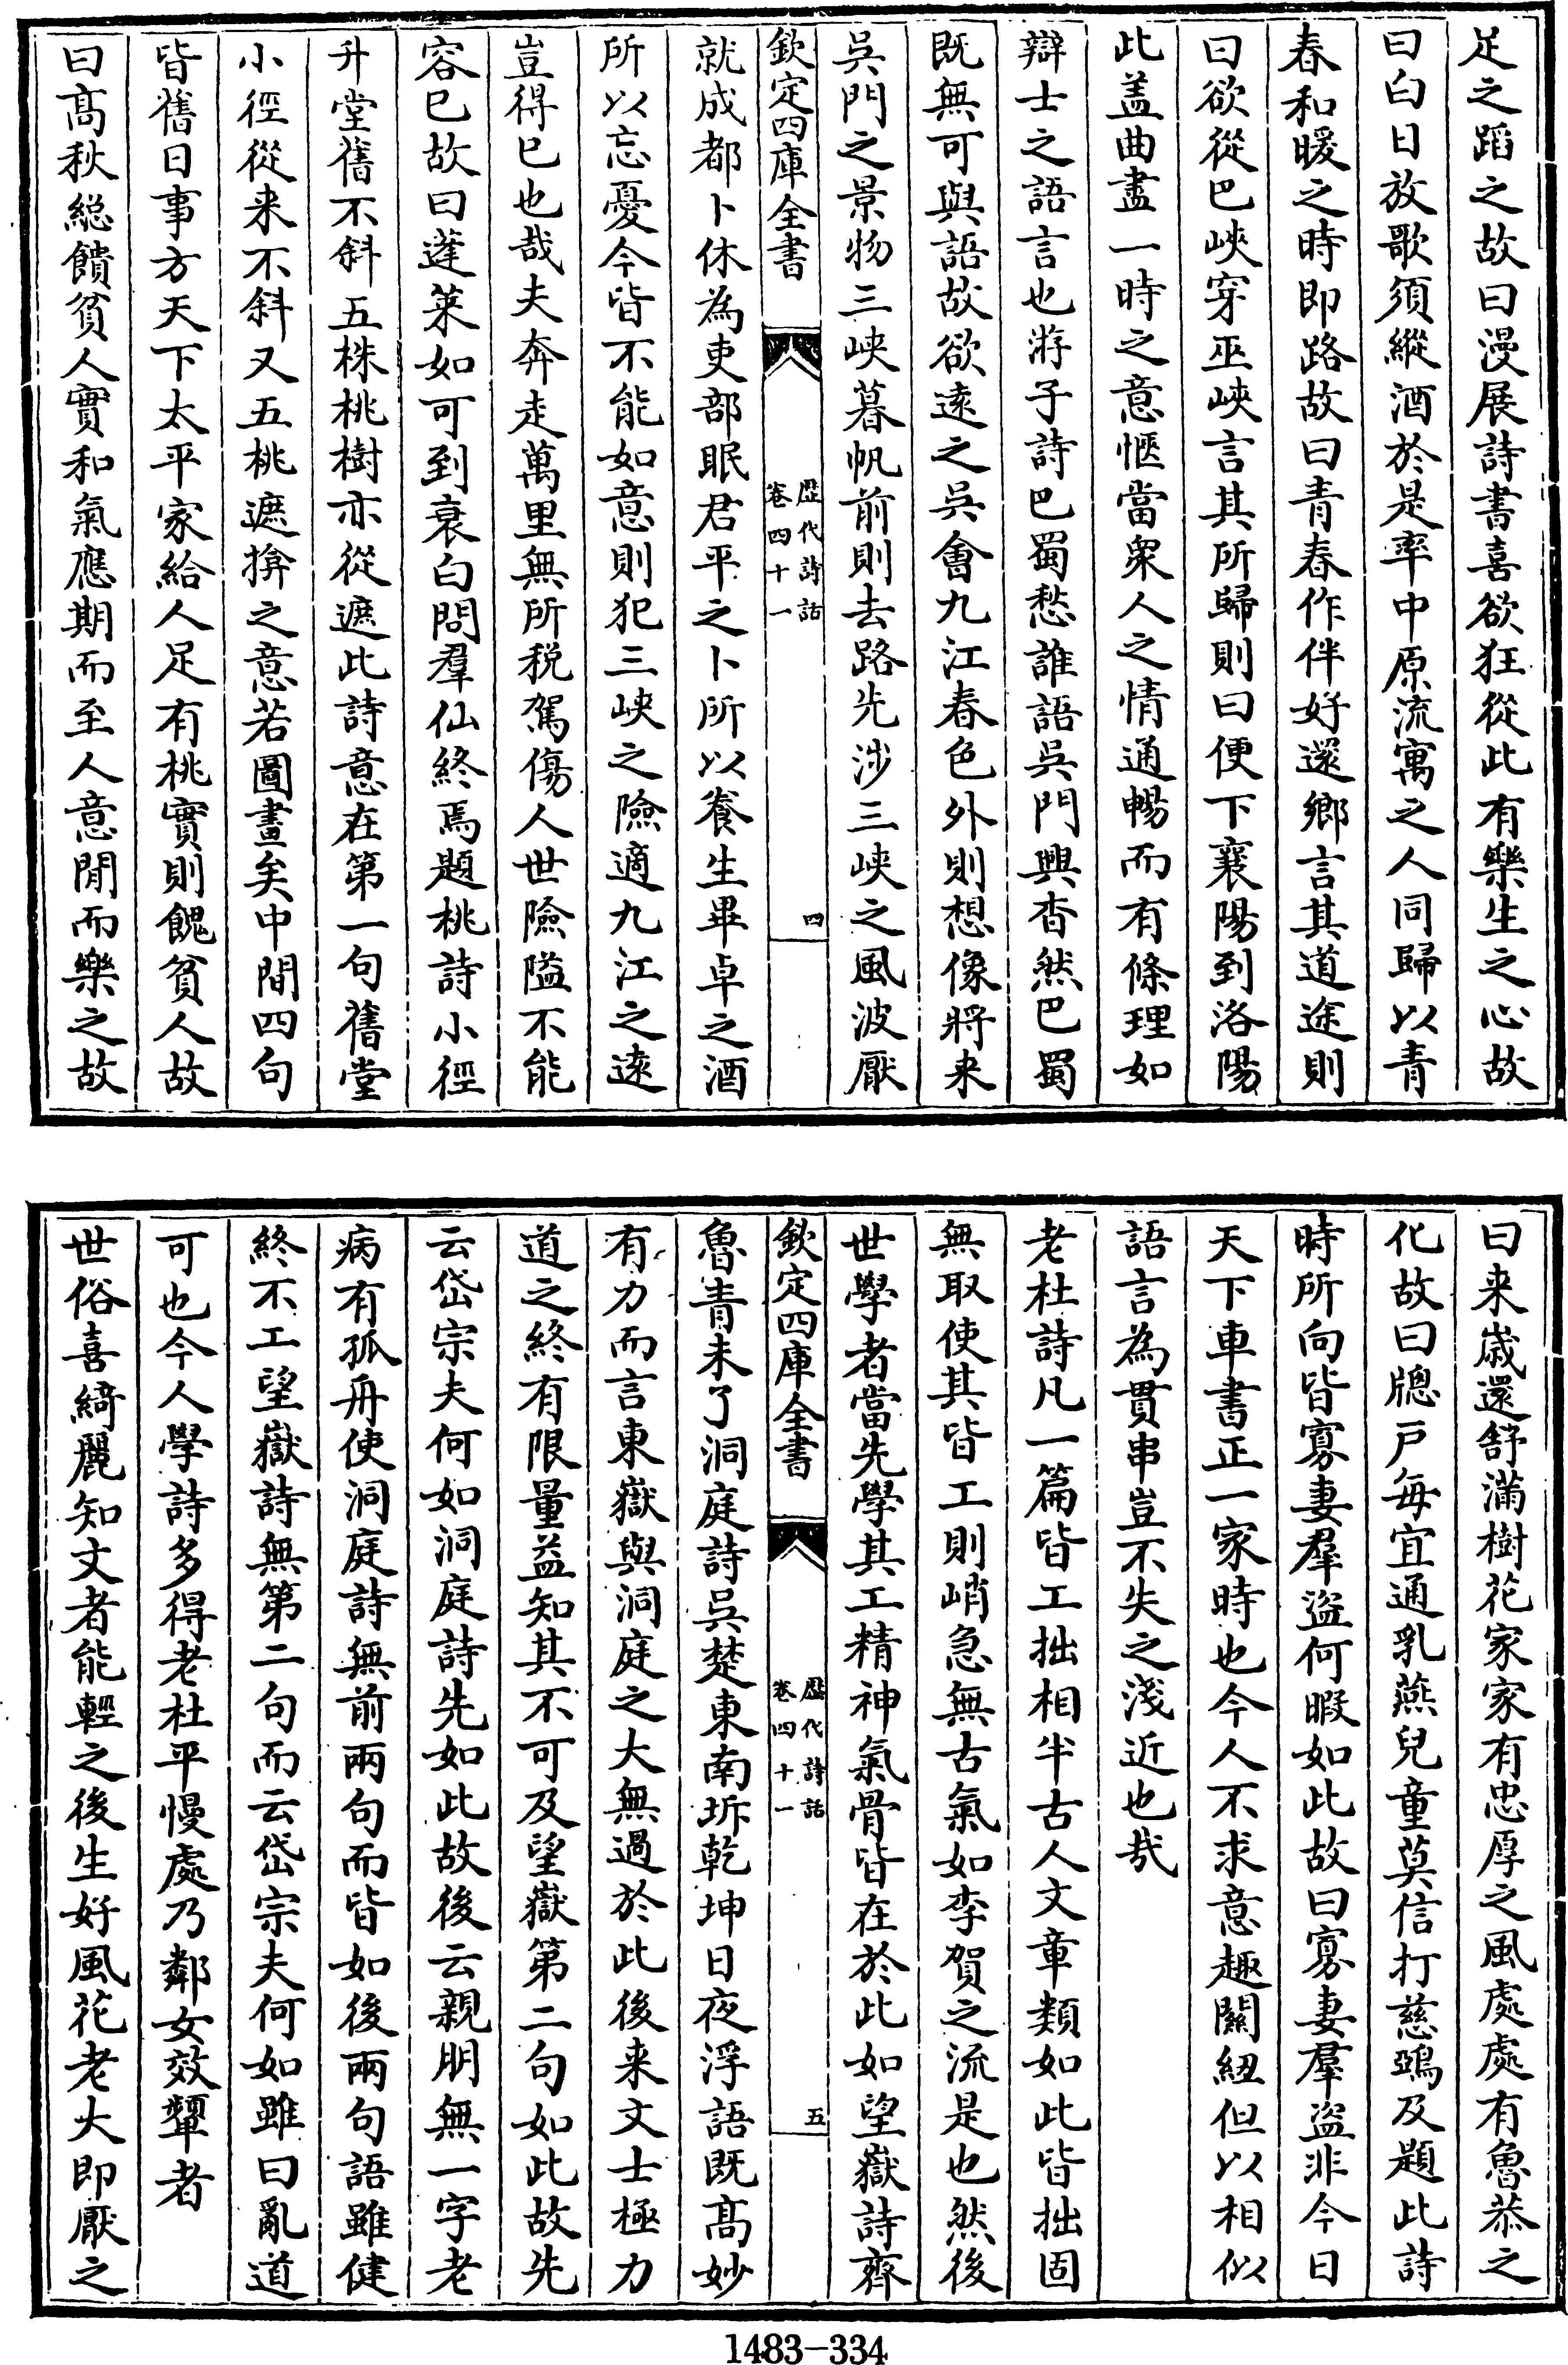 足之蹈之故曰漫展詩書喜欲狂從此有樂生之心故
曰白日放歌須縱酒於是率中原流寓之人同歸以青
春和暖之時即路故曰青春作伴好還鄉言其道途則
曰欲從巴峽穿巫峽言其所歸則曰便下襄陽到洛陽
此盖曲盡一時之意愜當衆人之情通暢而有條理如
辯士之語言也游子詩巴蜀愁誰語吳門興杳然巴蜀
既無可與語故欲遠之吳會九江春色外則想像將来
吳門之景物三峽暮帆前則去路先涉三峽之風波厭
欽定四庫全書
歴代詩話
卷四十一
四
就成都卜休為吏部眠君平之卜所以養生畢卓之酒
所以忘憂今皆不能如意則犯三峽之險適九江之遠
豈得已也哉夫奔走萬里無所税駕傷人世險隘不能
容已故曰蓬萊如可到衰白問羣仙終焉題桃詩小徑
升堂舊不斜五株桃樹亦從遮此詩意在第一句舊堂
小徑從来不斜又五桃遮揜之意若圖畫矣中間四句
皆舊日事方天下太平家給人足有桃實則餽貧人故
曰髙秋総饋貧人實和氣應期而至人意閒而樂之故
曰来嵗還舒滿樹花家家有忠厚之風處處有魯恭之
化故曰牕戸每宜通乳燕兒童莫信打慈鴉及題此詩
時所向皆寡妻羣盗何暇如此故曰寡妻羣盗非今日
天下車書正一家時也今人不求意趣闗紐但以相似
語言為貫串豈不失之淺近也㢤
老杜詩凡一篇皆工拙相半古人文章類如此皆拙固
無取使其皆工則峭急無古氣如李賀之流是也然後
世學者當先學其工精神氣骨皆在於此如望嶽詩齊
欽定四庫全書
歴代詩話
卷四十一
五
魯青未了洞庭詩吳楚東南坼乾坤日夜浮語既髙妙
有力而言東嶽與洞庭之大無過於此後来文士極力
道之終有限量益知其不可及望嶽第二句如此故先
云岱宗夫何如洞庭詩先如此故後云親朋無一字老
病有孤舟使洞庭詩無前兩句而皆如後兩句語雖健
終不工望嶽詩無第二句而云岱宗夫何如雖曰亂道
可也今人學詩多得老杜平慢處乃鄰女效顰者
世俗喜綺麗知文者能輕之後生好風花老大即厭之
1483-334